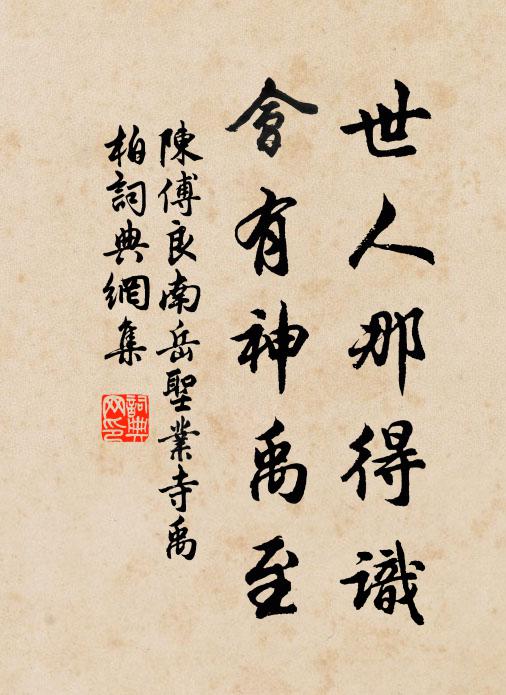 世人那得識
會有神禹至
陳傅良南岳聖業寺禹
柏詞典網集
詞典
网印